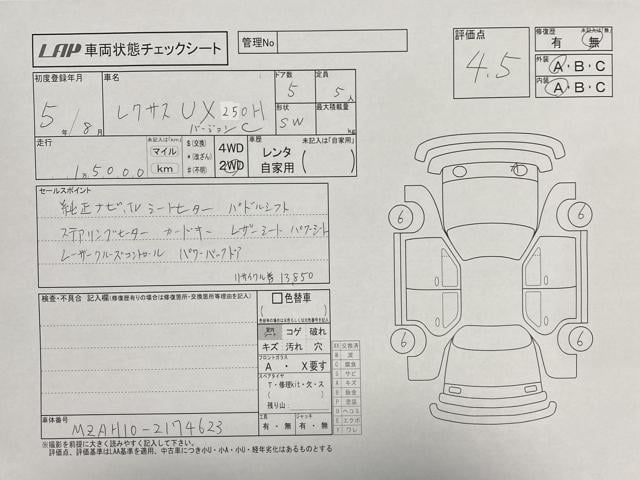 LAP 車両状態チェックシート
管理No
評価点
4.5
修復歴
未記入は「無」
有 ・ 無
外装
A・B・C
内装
A・B・C
初度登録年月
5年/8月
車名
レクサス UX 250H
バージョンC
ドア数
5
定員
5人
形状
SW
最大積載量
kg
走行
未記入は(km)
1万5,000
マイル
km
$(交換)
*(改ざん)
#(不明)
4WD
2WD
車歴
未記入は「自家用」
レンタ
自家用
セールスポイント
純正ナビ、TV シートヒーター パドルシフト
ステアリングヒーター カードキー レザーシート パワーシート
レーザークルーズコントロール パワーバックドア
リサイクル券 13,850
検査・不具合 記入欄(修復歴有りの場合は修復箇所・交換箇所等理由を記入)
色替車
室内
シート
コゲ 破れ
キズ 汚れ 穴
フロントガラス
A ・ X要す
スペアタイヤ
T・修理kit・欠・ス
残り山
工具
有・無
ジャッキ
有・無
XX 交換済
W 波
C 腐食
S サビ
A キズ
B 鈑金
P 塗装
U ヘコミ
E エクボ
Y ワレ
6
6
6
6
車体番号
MZAH10-2174623
※撮影を前提に大きく読みやすく記入して下さい。
評価点、評価基準はLAA基準を適用、中古車につき小U・小A・小U・経年劣化はあるものとする